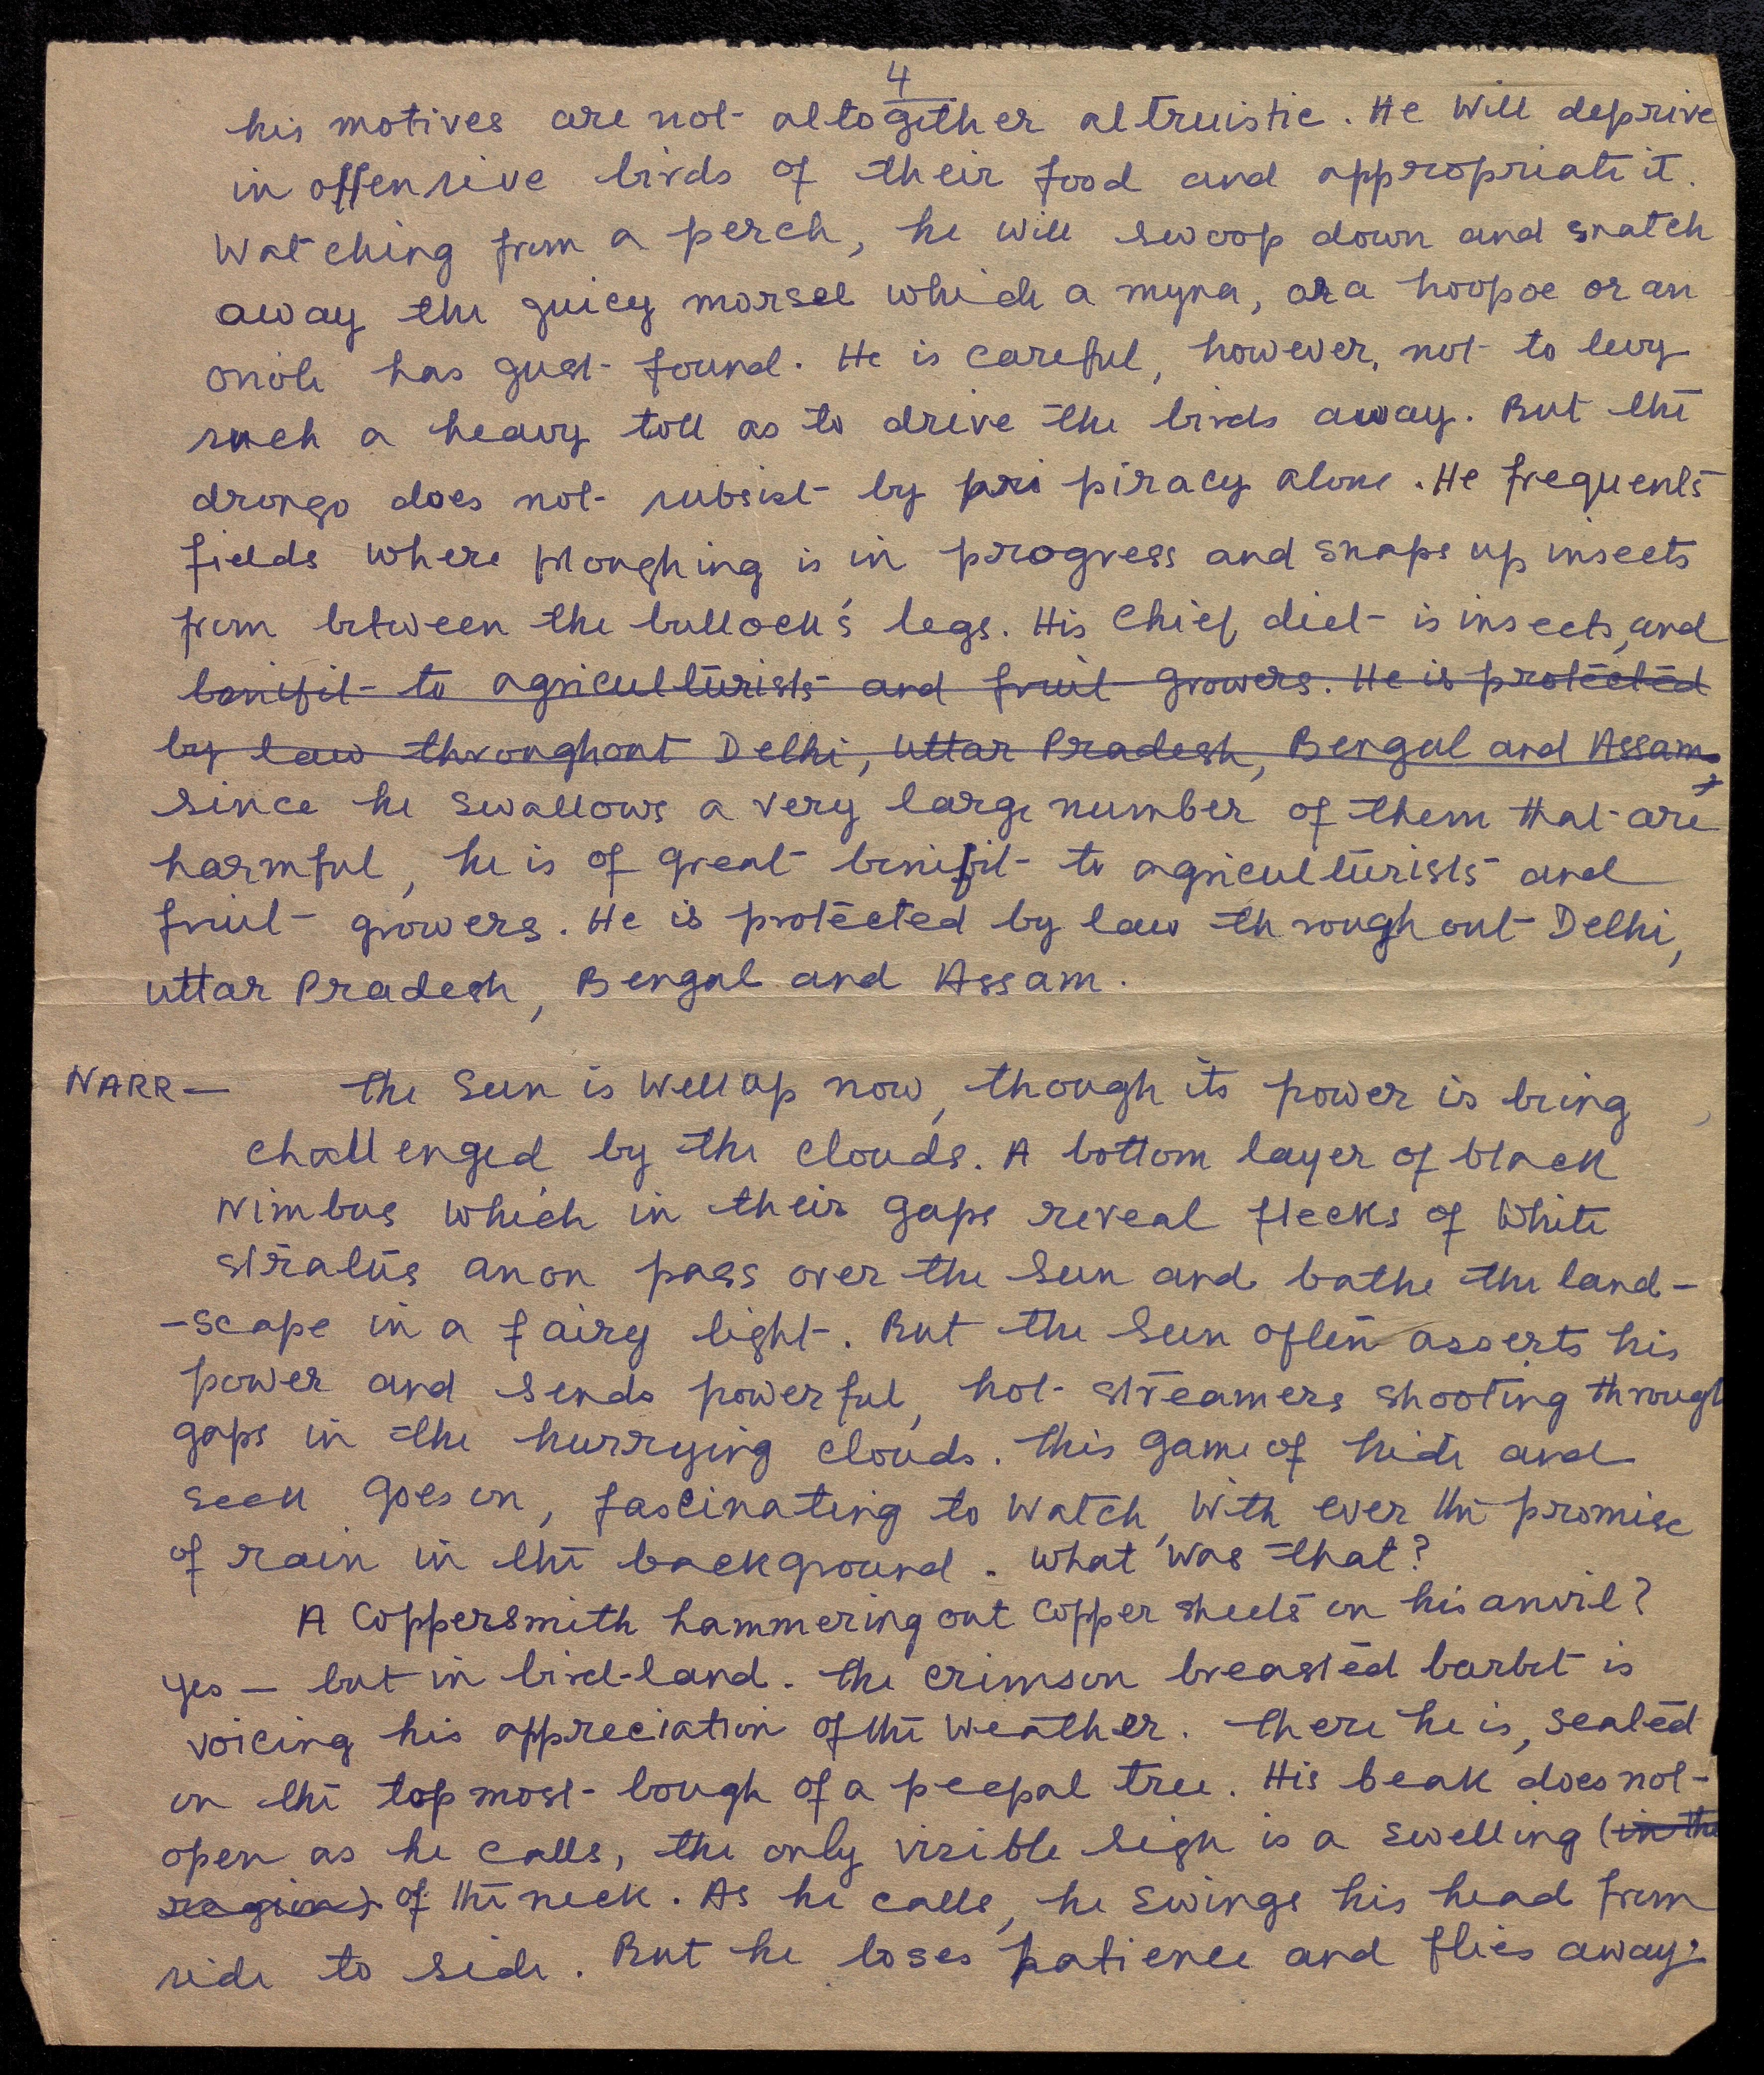 4
his motives are not altogether altruistic. He will deprive
inoffensive birds of their food and appropriate it.
Watching from a perch, he will swoop down and snatch
away the juicy morsel which a myna, or a hoopoe or an
oriole has just found. He is careful, however, not to levy
such a heavy toll as to drive the birds away. But the
drongo does not subsist by pri piracy alone. He frequents
fields where ploughing is in progress and snaps up insects
from between the bullock's legs. His chief diet is insects, and
benifit to agriculturists and fruit growers. He is protected
by law throughout Delhi, Uttar Pradesh, Bengal and Assam.
since he swallows a very large number of them that are
harmful, he is of great benifit to agriculturists and
fruit growers. He is protected by law throughout Delhi,
Uttar Pradesh, Bengal and Assam.
NARR — The Sun is well up now, though its power is being
challenged by the clouds. A bottom layer of black
Nimbus which in their gaps reveal flecks of white
stratus anon pass over the Sun and bathe the land-
-scape in a fairy light. But the Sun often asserts his
power and sends powerful, hot streamers shooting through
gaps in the hurrying clouds. This game of hide and
seek goes on, fascinating to watch, with ever the promise
of rain in the background. What was that?
A Coppersmith hammering out copper sheets on his anvil?
Yes — but in bird-land. The crimson breasted barbet is
voicing his appreciation of the weather. There he is, seated
on the topmost bough of a peepal tree. His beak does not
open as he calls, the only visible sign is a swelling (in the
region) of the neck. As he calls, he swings his head from
side to side. But he loses patience and flies away.